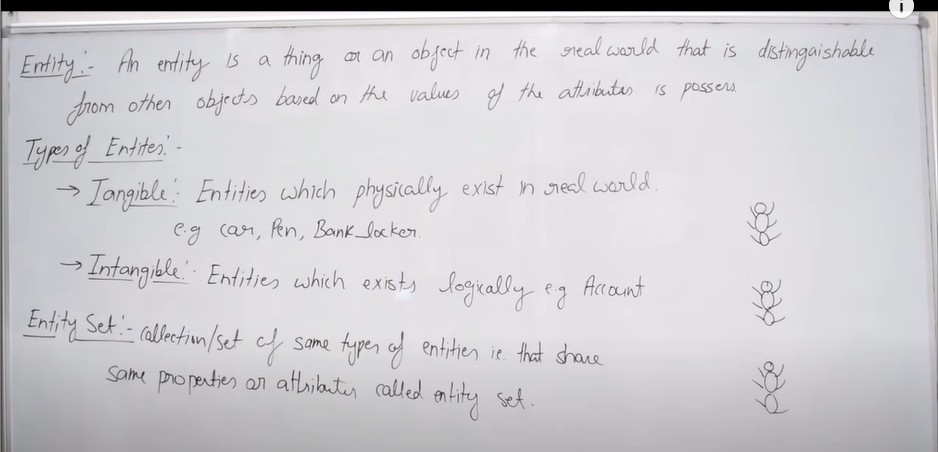 Entity:- An entity is a thing or an object in the real world that is distingaishable
from other objects based on the values of the attributes is possers.
Types of Entites:-
→ Tangible: Entities which physically exist in real world.
e.g car, Pen, Bank_locker.
→ Intangible:- Entities which exists logically e.g Account
Entity Set:- collection/set of same types of entities i.e. that share
same properties or attributes called entity set.